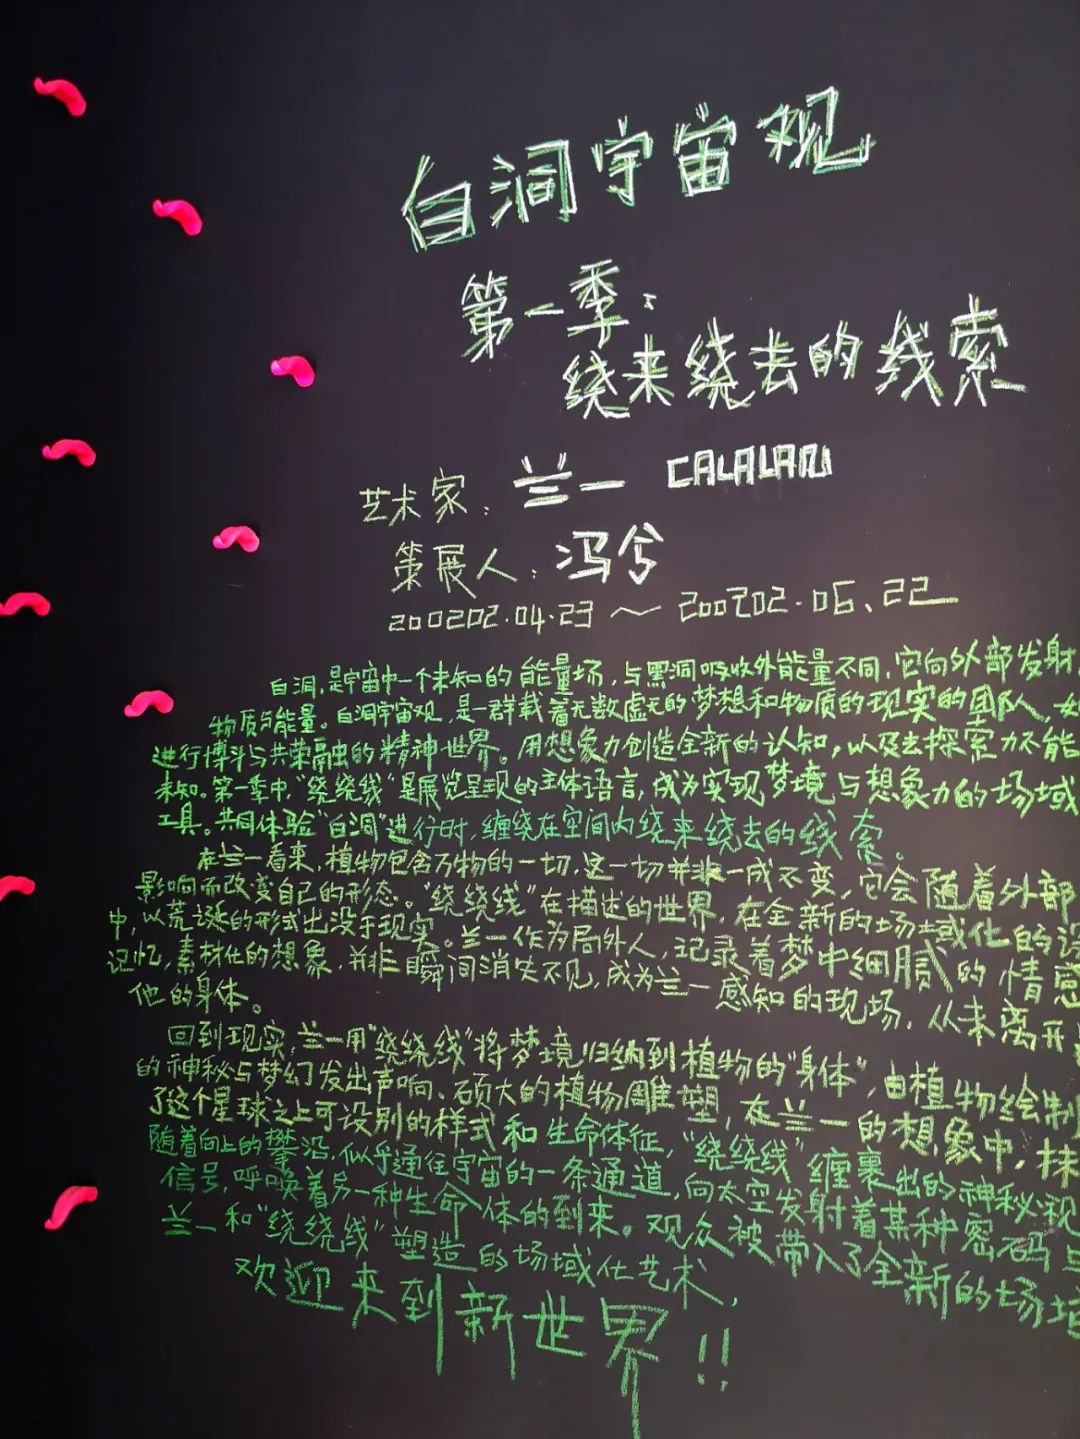 白洞宇宙观
第一季:
绕来绕去的线索
艺术家: 兰一 CALALAN
策展人: 冯兮
200202.04.23 ～ 200202.06.22
白洞,是宇宙中一个未知的能量场,与黑洞吸收外能量不同,它向外部发射
物质与能量。白洞宇宙观,是一群载着无数虚无的梦想和物质的现实的团队,
进行博斗与共荣融的精神世界。用想象力创造全新的认知,以及去探索力不能
未知。第一季中,"绕绕线"是展览呈现的主体语言,成为实现梦境与想象力的场域
工具。共同体验"白洞"进行时,缠绕在空间内绕来绕去的线索。
在兰一看来,植物包含万物的一切,这一切并非一成不变,它会随着外部
影响而改变自己的形态。"绕绕线"在描述的世界,在全新的场域化的
中,以荒诞的形式出没于现实。兰一作为局外人,记录着梦中细腻的情感
记忆,素材化的想象,并非瞬间消失不见,成为兰一感知的现场,从未离开
他的身体。
回到现实,兰一用"绕绕线"将梦境归纳到植物的"身体",由植物绘制
的神秘与梦幻发出声响、硕大的植物雕塑,在兰一的想象中,抹
了这个星球之上可设别的样式和生命体征,"绕绕线"缠裹出的神秘现
随着向上的攀沿,似乎通往宇宙的一条通道,向太空发射着某种密码与
信号,呼唤着另一种生命体的到来。观众被带入了全新的场域
兰一和"绕绕线"塑造的场域化艺术,
欢迎来到新世界!!